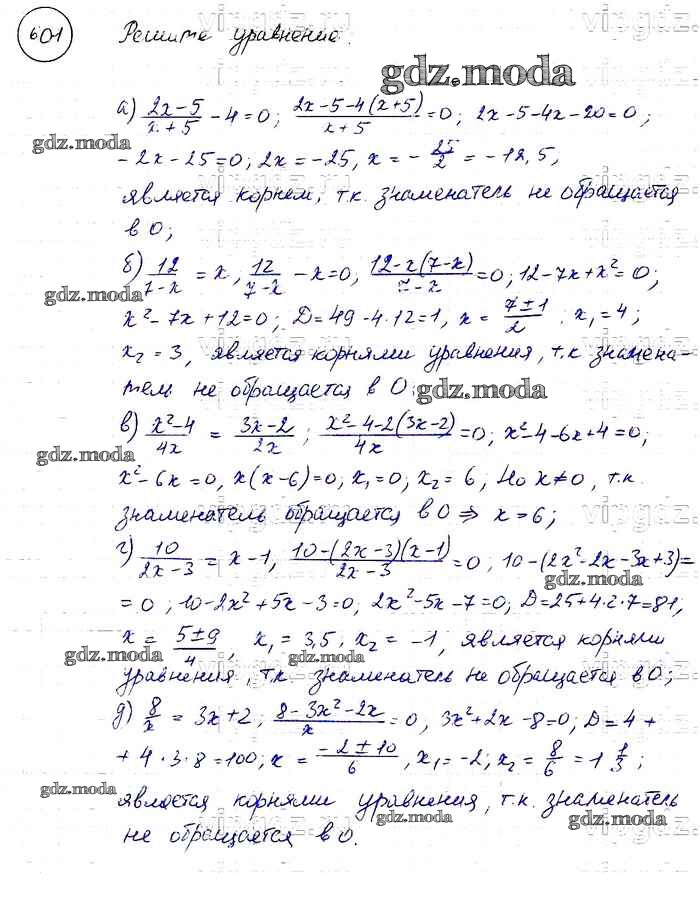 601 Решите уравнение.
gdz.moda
а) (2x-5)/(x+5) - 4 = 0; (2x-5-4(x+5))/(x+5) = 0; 2x-5-4x-20=0;
gdz.moda
-2x-25=0; 2x=-25, x = -25/2 = -12,5,
является корнем, т.к. знаменатель не обращается
в 0;
б) 12/(7-x) = x, 12/(7-x) - x=0, (12-x(7-x))/(7-x) = 0; 12-7x+x²=0;
gdz.moda
x²-7x+12=0; D=49-4·12=1, x = (7±1)/2 : x₁=4;
x₂=3, является корнями уравнения, т.к знамена-
тель не обращается в 0;
gdz.moda
в) (x²-4)/4x = (3x-2)/2x; (x²-4-2(3x-2))/4x = 0; x²-4-6x+4=0;
gdz.moda
x²-6x=0, x(x-6)=0; x₁=0; x₂=6, Но x≠0, т.к.
знаменатель обращается в 0 ⇒ x=6;
г) 10/(2x-3) = x-1, (10-(2x-3)(x-1))/(2x-3) = 0; 10-(2x²-2x-3x+3)=
gdz.moda
=0; 10-2x²+5x-3=0, 2x²-5x-7=0; D=25+4·2·7=81,
x = (5±9)/4, x₁=3,5, x₂=-1, является корнями
gdz.moda gdz.moda
уравнения, т.к. знаменатель не обращается в 0;
д) 8/x = 3x+2; (8-3x²-2x)/x = 0, 3x²+2x-8=0; D=4+
+4·3·8=100; x = (-2±10)/6, x₁=-2; x₂=8/6=1 1/3;
gdz.moda
является корнями уравнения, т.к. знаменатель
gdz.moda gdz.moda
не обращается в 0.